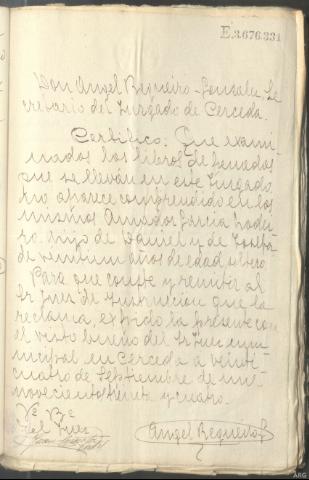 E.3.676.331
Don Angel Requeiro Gonzalez Se
cretario del Juzgado de Cerceda.
Certifico: Que exami-
nados los libros de penados
que se llevan en este Juzgado
no aparece comprendido en los
mismos Amador Garcia
hijo de Daniel y de
de veintiun años de edad,
Para que conste y remitir al
Sr Juez de Instruccion que la
reclama, expido la presente con
el visto bueno del Sr Juez mu
nicipal en Cerceda a veinti
cuatro de Septiembre de mil
novecientos treinta y cuatro.
Vº Bº
el Juez
Angel Requeiro G
ARG